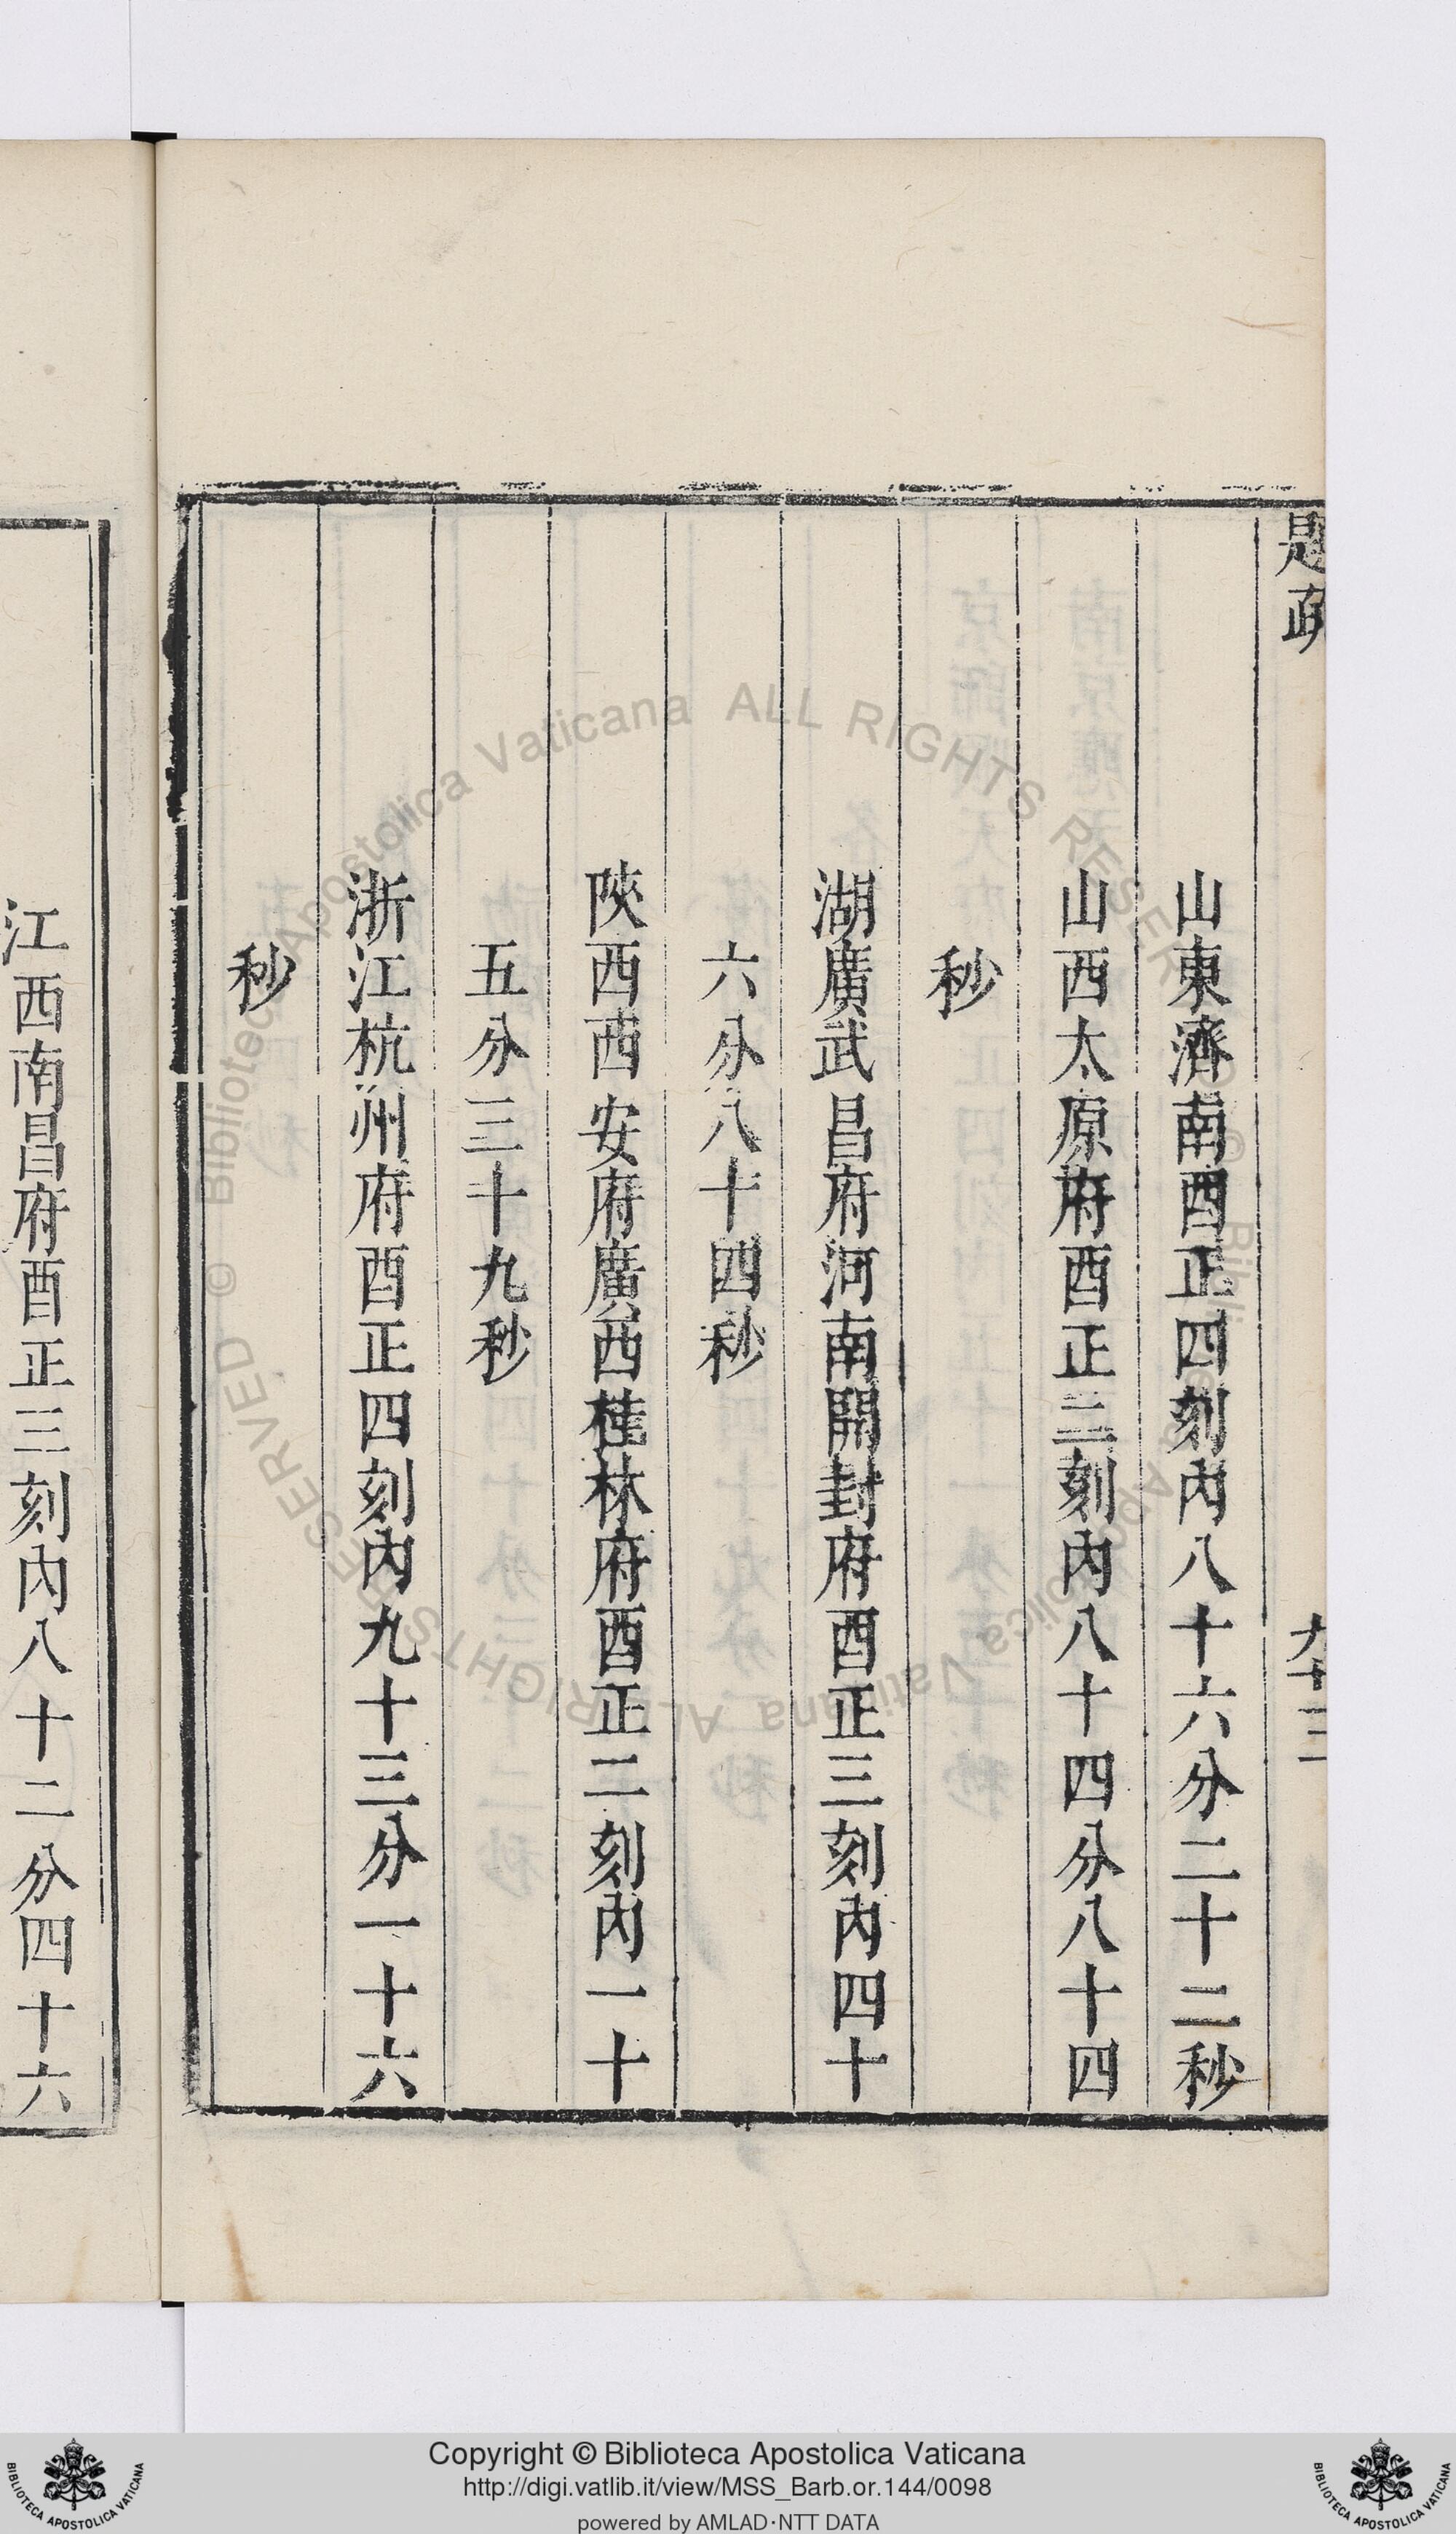 山東濟南酉正四刻內八十六分二十二秒
山西太原府酉正二刻內八十四分八十四
秒
湖廣武昌府河南開封府酉正三刻內四十
六分八十四秒
陝西西安府廣西桂林府酉正二刻內一十
五分三十九秒
浙江杭州府酉正四刻內九十三分一十六
秒
江西南昌府酉正三刻內八十二分四十六
Copyright © Biblioteca Apostolica Vaticana
http://digi.vatlib.it/view/MSS_Barb.or.144/0098
powered by AMLAD·NTT DATA